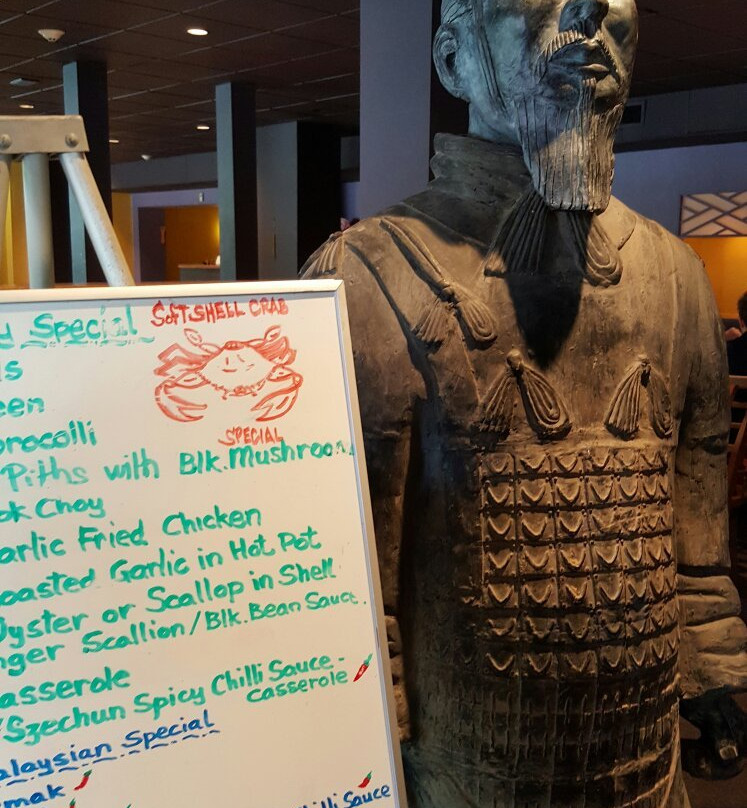 SOFT SHELL CRAB
SPECIAL
y Special
ls
een
brocoili
Piths with Blk. Mushroom
ok Choy
arlic Fried Chicken
oasted Garlic in Hot Pot
Oyster or Scallop in Shell
nger Scallion/Blk. Bean Sauce.
asserole
Szechun Spicy Chilli Sauce -
Casserole
alaysian Special
mak
illi Sauce